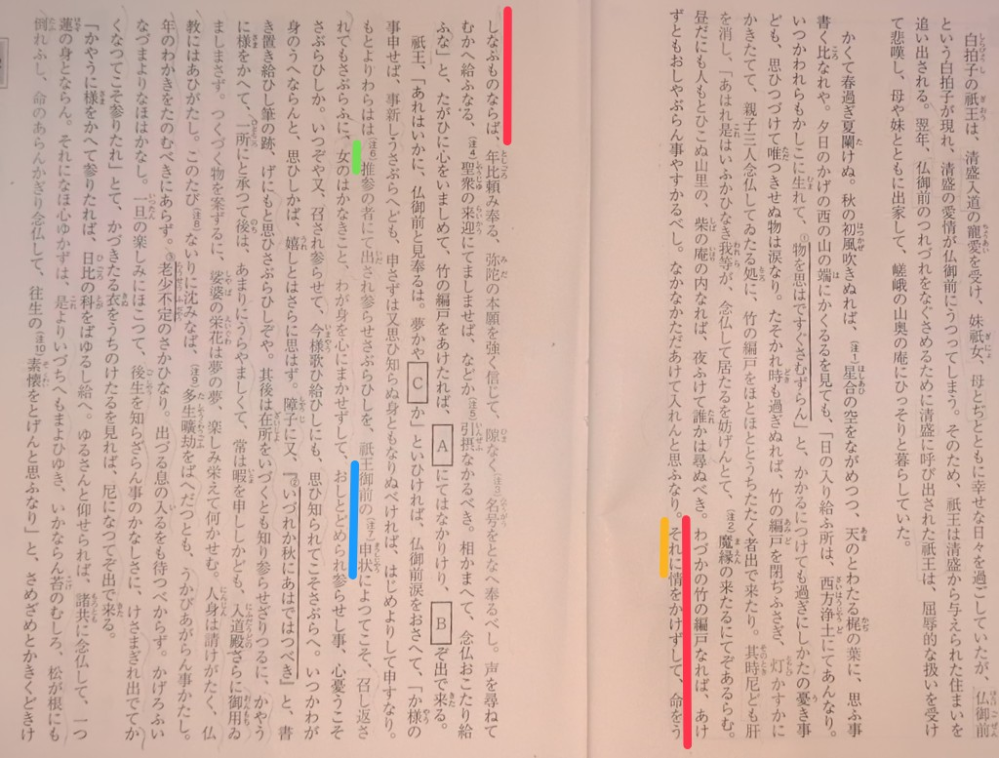 白拍子の祇王は、清盛入道の寵愛を受け、妹祇女、母とぢとともに幸せな日々を過ごしていたが、仏御前
という白拍子が現れ、清盛の愛情が仏御前にうつってしまう。そのため、祇王は清盛から与えられた住まいを
追い出される。翌年、仏御前のつれづれをなぐさめるために清盛に呼び出された祇王は、屈辱的な扱いを受け
て悲嘆し、母や妹とともに出家して、嵯峨の山奥の庵にひっそりと暮らしていた。
かくて春過ぎ夏闌けぬ。秋の初風吹きぬれば、(注1)星合の空をながめつつ、天のとわたる梶の葉に、思ふ事
書く比なれや。夕日のかげの西の山の端にかくるるを見ても、「日の入り給ふ所は、西方浄土にてあんなり。
いつかわれらもかしこに生れて、①物を思はですぐさむずらん」と、かかるにつけても過ぎにしかたの憂き事
ども、思ひつづけて唯つきせぬ物は涙なり。たそかれ時も過ぎぬれば、竹の編戸を閉ぢふさぎ、灯かすかに
かきたてて、親子三人念仏してゐたる処に、竹の編戸をほとほととうちたたく者出で来たり。其時尼ども肝
を消し、「あはれ是はいふかひなき我等が、念仏して居たるを妨げんとて、(注2)魔縁の来たるにてぞあるらむ。
昼だにも人もとひこぬ山里の、柴の庵の内なれば、夜ふけて誰かは尋ぬべき。わづかの竹の編戸なれば、あけ
ずともおしやぶらん事やすかるべし。なかなかただあけて入れんと思ふなり。それに情をかけずして、命をう
しなふものならば、年比頼み奉る、弥陀の本願を強く信じて、隙なく(注3)名号をとなへ奉るべし。声を尋ねて
むかへ給ふなる、(注4)聖衆の来迎にてましませば、などか(注5)引摂なかるべき。相かまへて、念仏おこたり給
ふな」と、たがひに心をいましめて、竹の編戸をあけたれば、 A にてはなかりけり、 B ぞ出で来る。
祇王、「あれはいかに、仏御前と見奉るは。夢かや C か」といひければ、仏御前涙をおさへて、「か様の
事申せば、事新しうさぶらへども、申さずは又思ひ知らぬ身ともなりぬべければ、はじめよりして申すなり。
もとよりわらはは(注6)推参の者にて出され参らせさぶらひしを、祇王御前の(注7)申状によつてこそ、召し返さ
れてもさぶらふに、女のはかなきこと、わが身を心にまかせずして、おしとどめられ参らせし事、心憂うこそ
さぶらひしか。いつぞや又、召され参らせて、今様歌ひ給ひしにも、思ひ知られてこそさぶらへ。いつかわが
身のうへならんと、思ひしかば、嬉しとはさらに思はず。障子に又、『②いづれか秋にあはではつべき』と、書
き置き給ひし筆の跡、げにもと思ひさぶらひしぞや。其後は在所をいづくとも知り参らせざりつるに、かやう
に様をかへて、一所にと承つて後は、あまりにうらやましくて、常は暇を申ししかども、入道殿さらに御用ゐ
ましまさず。つくづく物を案ずるに、娑婆の栄花は夢の夢、楽しみ栄えて何かせむ。人身は請けがたく、仏
教にはあひがたし。このたび(注8)ないりに沈みなば、(注9)多生曠劫をばへだつとも、うかびあがらん事かたし。
年のわかきをたのむべきにあらず。③老少不定のさかひなり。出づる息の入るをも待つべからず。かげろふい
なづまよりなほはかなし。一旦の楽しみにほこつて、後生を知らざらん事のかなしさに、けさまぎれ出でてか
くなつてこそ参りたれ」とて、かづきたる衣をうちのけたるを見れば、尼になつてぞ出で来る。
「かやうに様をかへて参りたれば、日比の科をばゆるし給へ。ゆるさんと仰せられば、諸共に念仏して、一つ
蓮の身とならん。それになほ心ゆかずは、是よりいづちへもまよひゆき、いかならん苔のむしろ、松が根にも
倒れふし、命のあらんかぎり念仏して、往生の(注10)素懐をとげんと思ふなり」と、さめざめとかきくどきけ